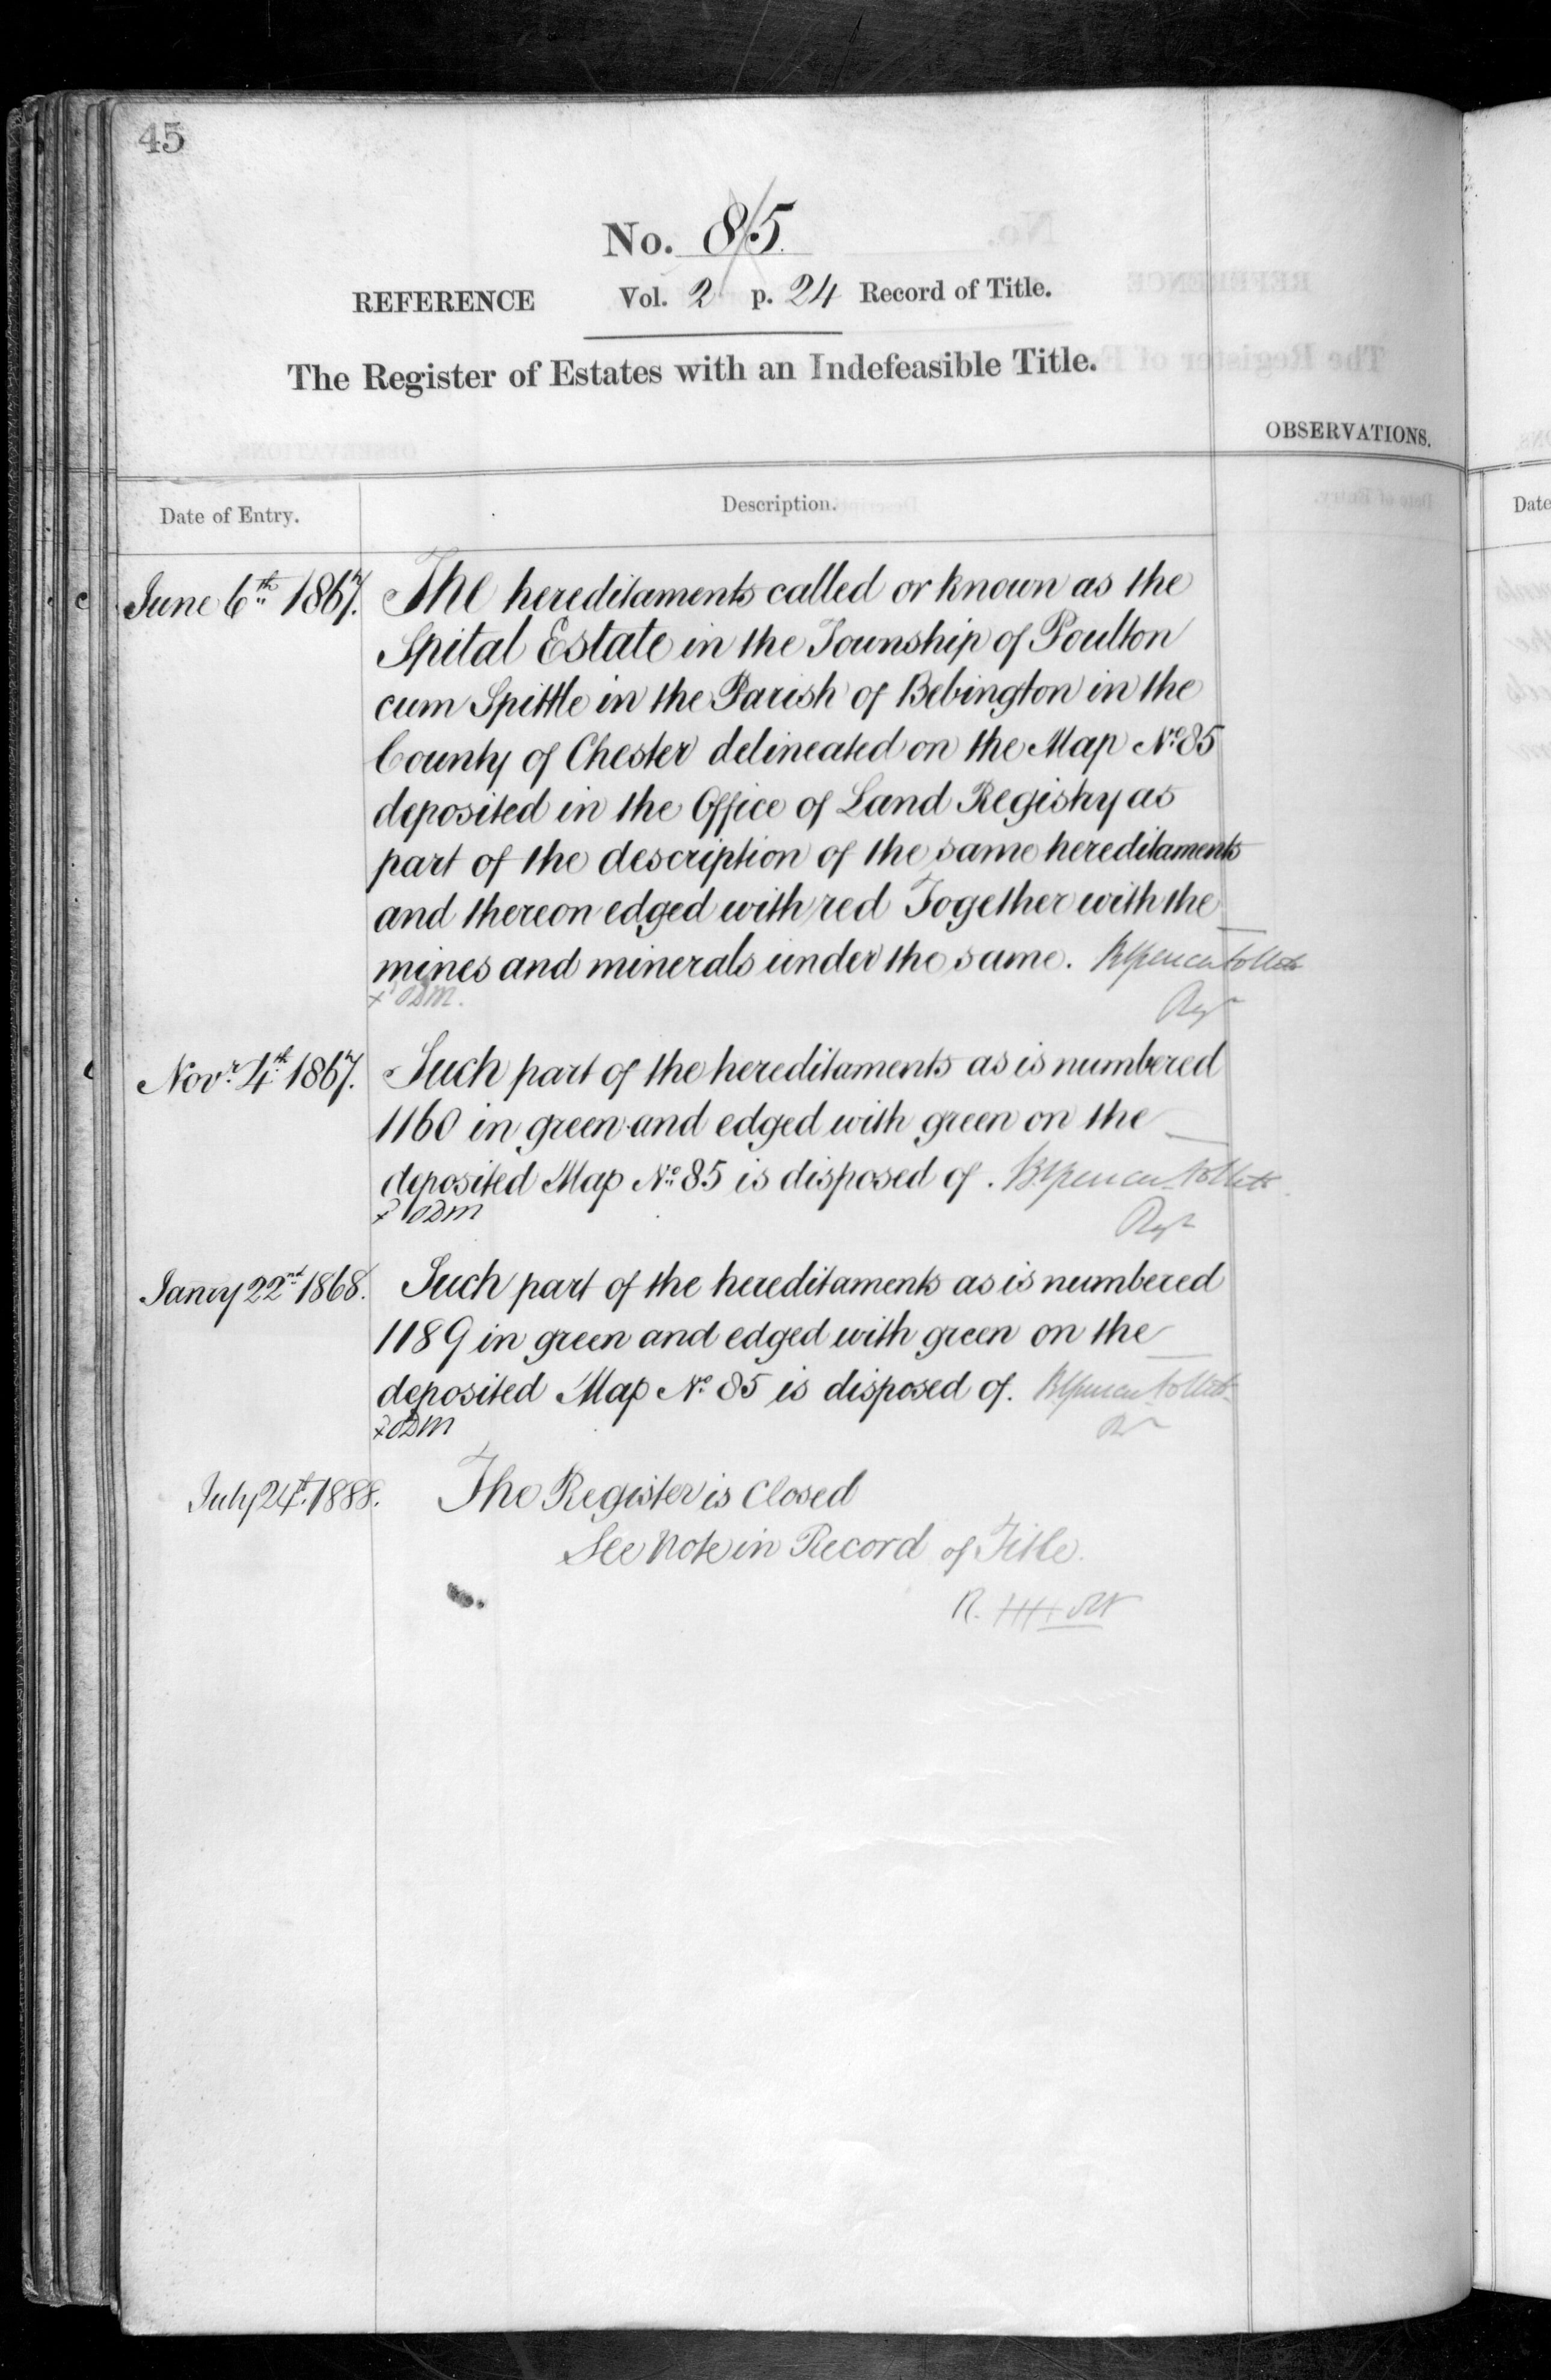 45
No. 85.
REFERENCE Vol. 2 p. 24 Record of Title.
The Register of Estates with an Indefeasible Title.
OBSERVATIONS.
Date of Entry. Description.
June 6th 1867. The hereditaments called or known as the
Spital Estate in the Township of Poulton
cum Spittle in the Parish of Bebington in the
County of Chester delineated on the Map No. 85
deposited in the Office of Land Registry as
part of the description of the same hereditaments
and thereon edged with red Together with the
mines and minerals under the same. Brent Spencer Follett
x ODM. Regr
Novr. 4th 1867. Such part of the hereditaments as is numbered
1160 in green and edged with green on the
deposited Map No. 85 is disposed of. B Spencer Follett
x ODM Regr
Janry 22nd 1868. Such part of the hereditaments as is numbered
1189 in green and edged with green on the
deposited Map No. 85 is disposed of. B Spencer Follett
x ODM
July 24th. 1888. The Register is Closed
See Note in Record of Title.
Date